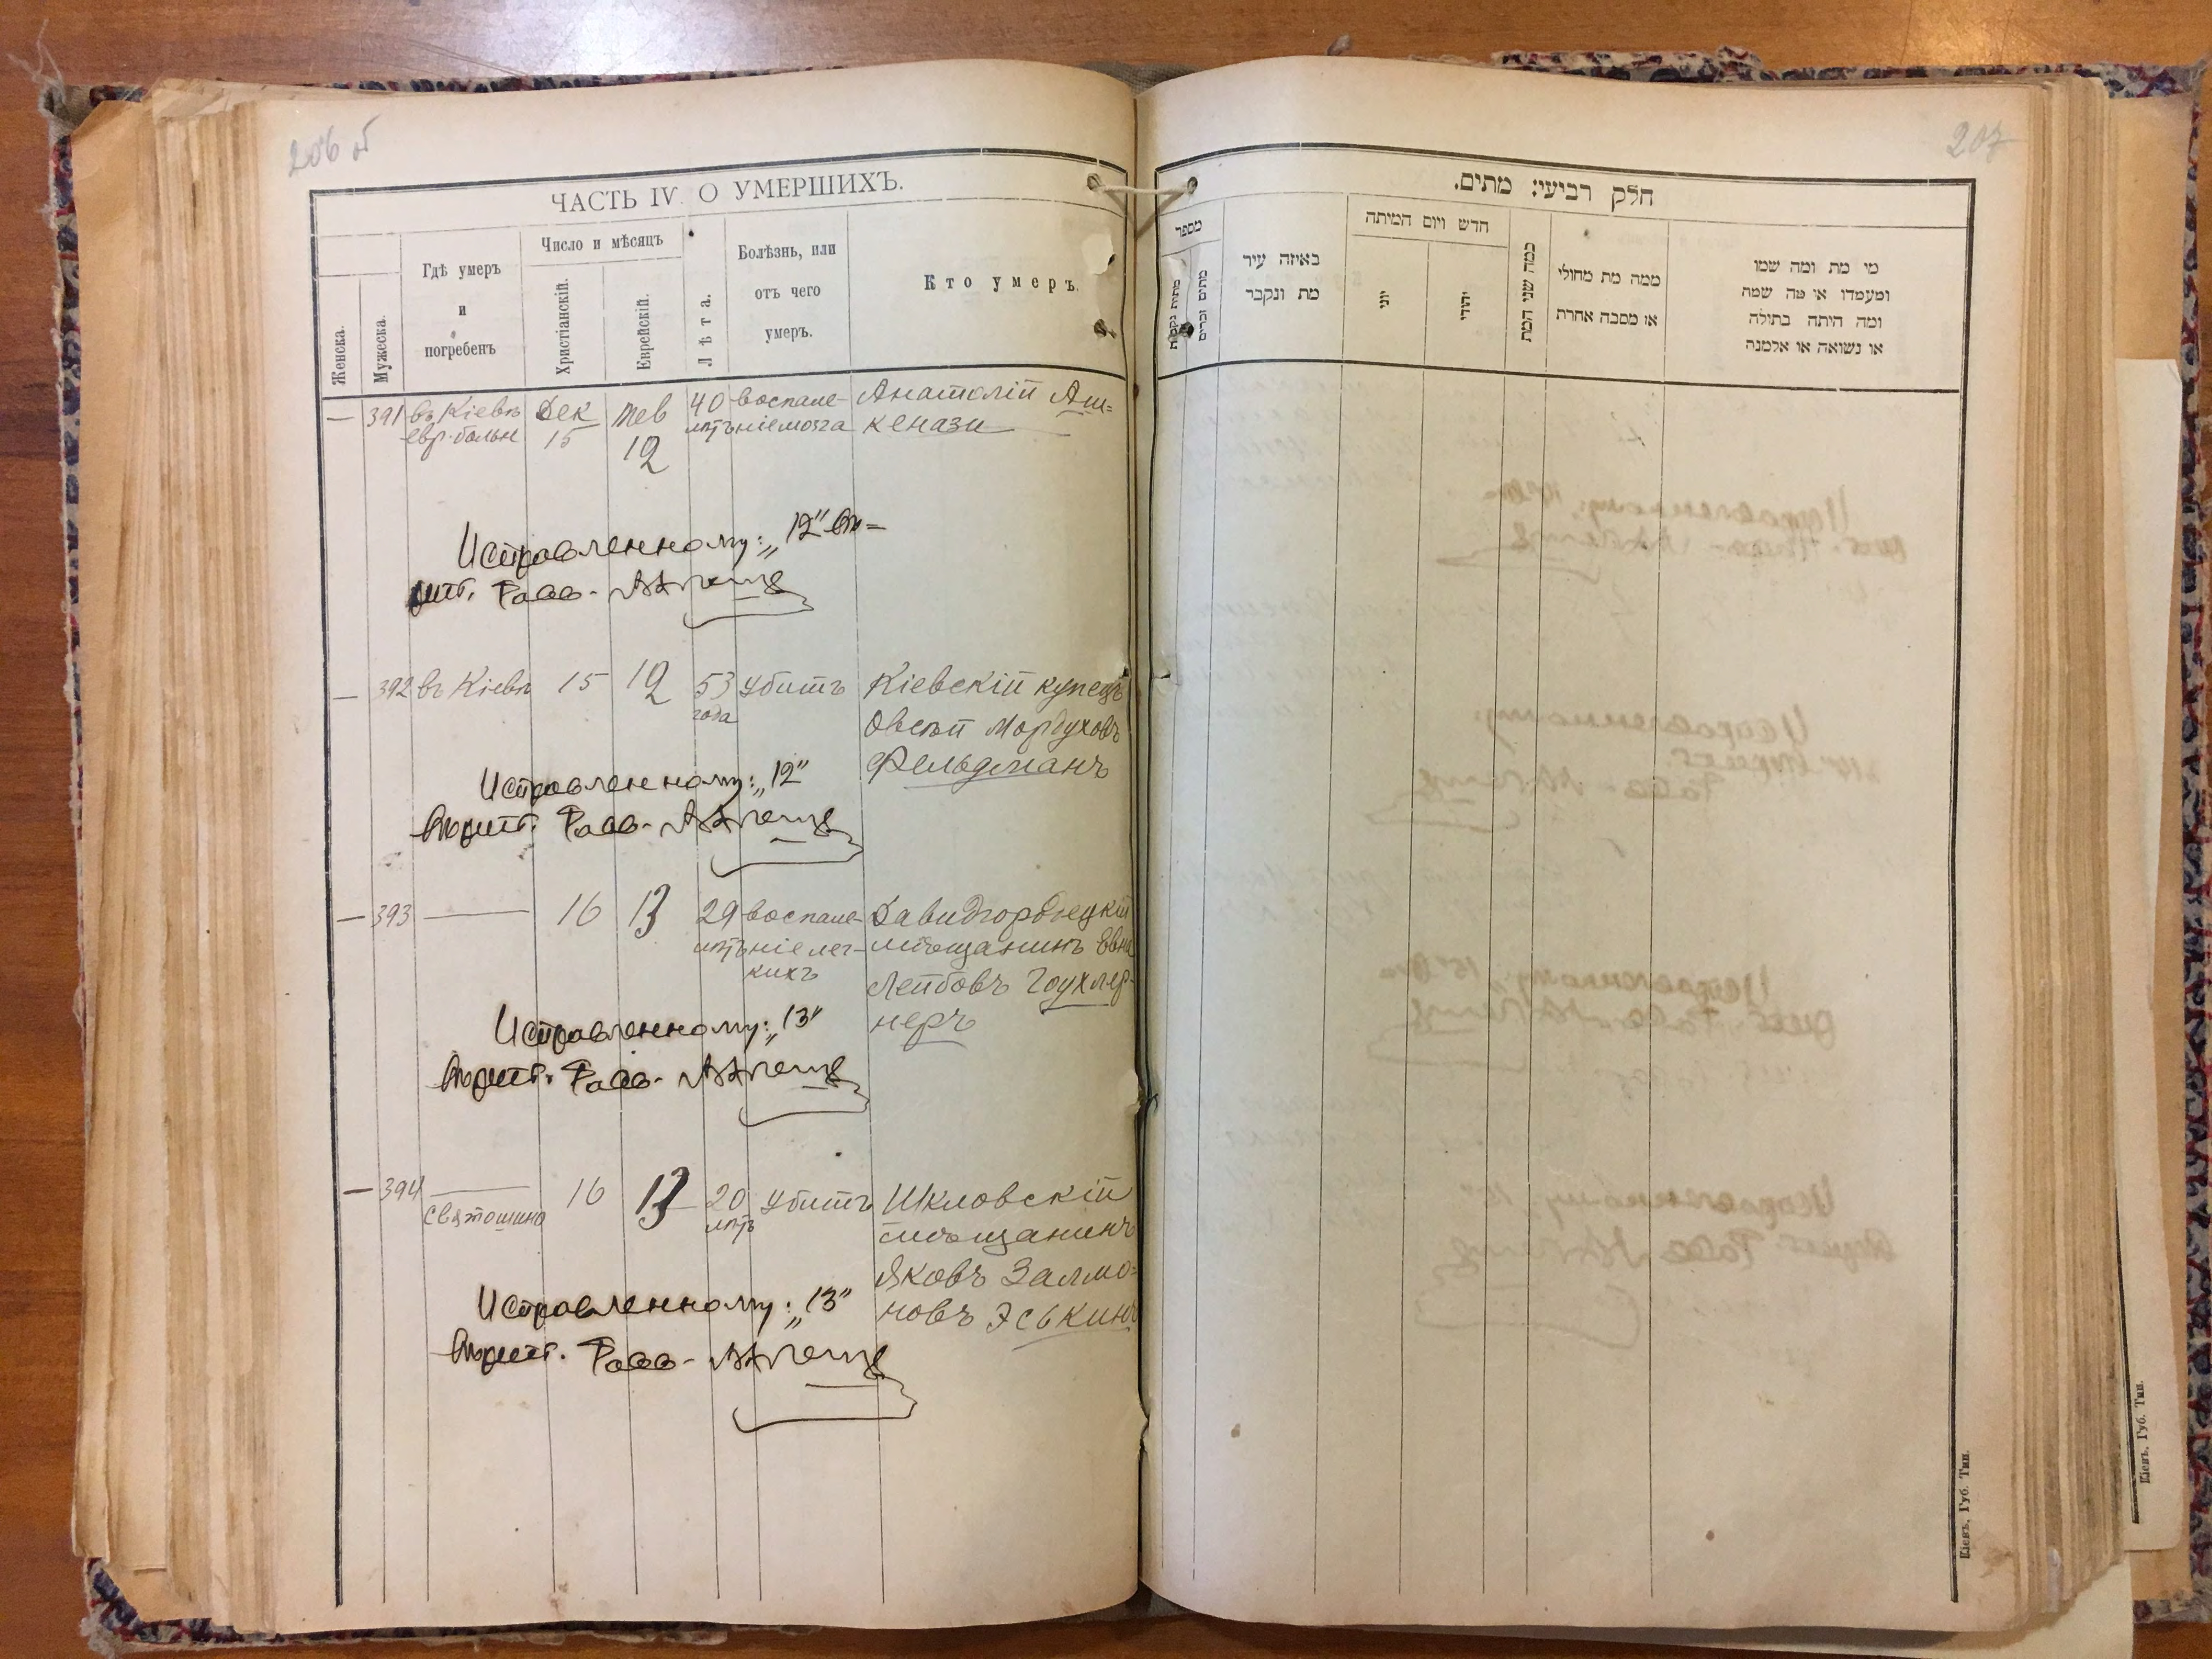 206 об
ЧАСТЬ IV. О УМЕРШИХЪ.
Женска.
Мужеска.
Гдѣ умеръ
и
погребенъ
Число и мѣсяцъ
Христіанскій.
Еврейскій.
Лѣта.
Болѣзнь, или
отъ чего
умеръ.
Кто умеръ.
— 391 въ Кіевѣ Дек Тев 40 воспале- Анатолій Аш=
евр. больн 15 12 лѣтъ ніе мозга кенази
Исправленному: „12" вѣ=
рить. Равв.
— 392 въ Кіевѣ 15 12 53 убитъ Кіевскій купецъ
года Овсѣй Мордуховъ
Фельдманъ
Исправленному: „12"
вѣрить. Равв.
— 393 — 16 13 29 воспале- Давидгородецкій
лѣтъ ніе лег- мѣщанинъ Евна
кихъ Лейбовъ
неръ
Исправленному: „13"
вѣрить. Равв.
— 394 — 16 13 20 убитъ Шкловскій
Святошино лѣтъ мѣщанинъ
Яковъ Залмо=
новъ Эськинъ
Исправленному: „13"
вѣрить. Равв.
207
חלק רביעי: מתים.
מספר
מתות נקבות
מתים זכרים
באיזה עיר
מת ונקבר
חדש ויום המיתה
יוני
יהודי
כמה שני המת
ממה מת מחולי
או מסבה אחרת
מי מת ומה שמו
ומעמדו או מה שמה
ומה היתה בתולה
או נשואה או אלמנה
Кіевъ, Губ. Тип.
Кіевъ, Губ. Тип.